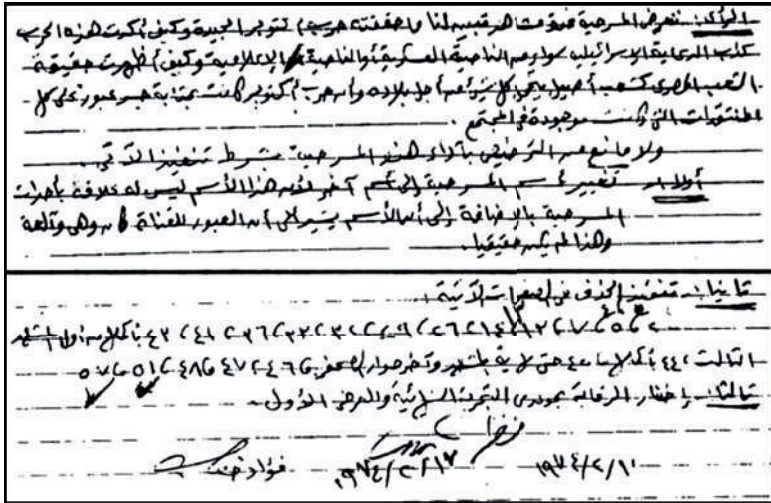 الرأى: تتعرض المسرحية فوق ت هد قضيه لنا ما حققته حرب أكتوبر المجيدة وكيف أكدت هذه الحرب
كذب الدعاية الإسرائيلية سواء من الناحية العسكرية أو الناحية الإعلامية وكيف أظهرت حقيقة
الشعب المصرى كشعب أصيل يضحى بكل شىء من أجل بلاده وأن حرب أكتوبر كانت بمثابة جسر عبور على كل
المتناقضات التى كانت موجودة فى المجتمع.
ولا مانع من الترخيص بأداء هذه المسرحية بشرط تنفيذ الآتى.
أولا: تغيير اسم المسرحية إلى اسم آخر لأن هذا الاسم ليس له علاقة بأحداث
المسرحية بالإضافة إلى أن الاسم يشير إلى أن العبور للقناة كان وهى وآلهة
وهذا لم يكن حقيقيا.
ثانيا: تنفيذ الحذف فى الصفحات الآتية:
٢، ٤، ٥، ٧، ١٢، ١٤، ٢٦، ٢٩، ٣٠، ٣٢، ٣٦، ٤١، ٤٣ بأكملها من أول المشهد
الثالث، ٤٤ بأكملها، ٤٥ حتى نهاية المشهد وآخر حوار الصفحة، ٤٦، ٤٧، ٤٨، ٥١، ٥٧
ثالثا: إخطار الرقابة بموعدى التجربة النهائية والعرض الأول.
١٩٧٤/٢/١٠ ١٩٧٤/٢/١٧ فؤاد